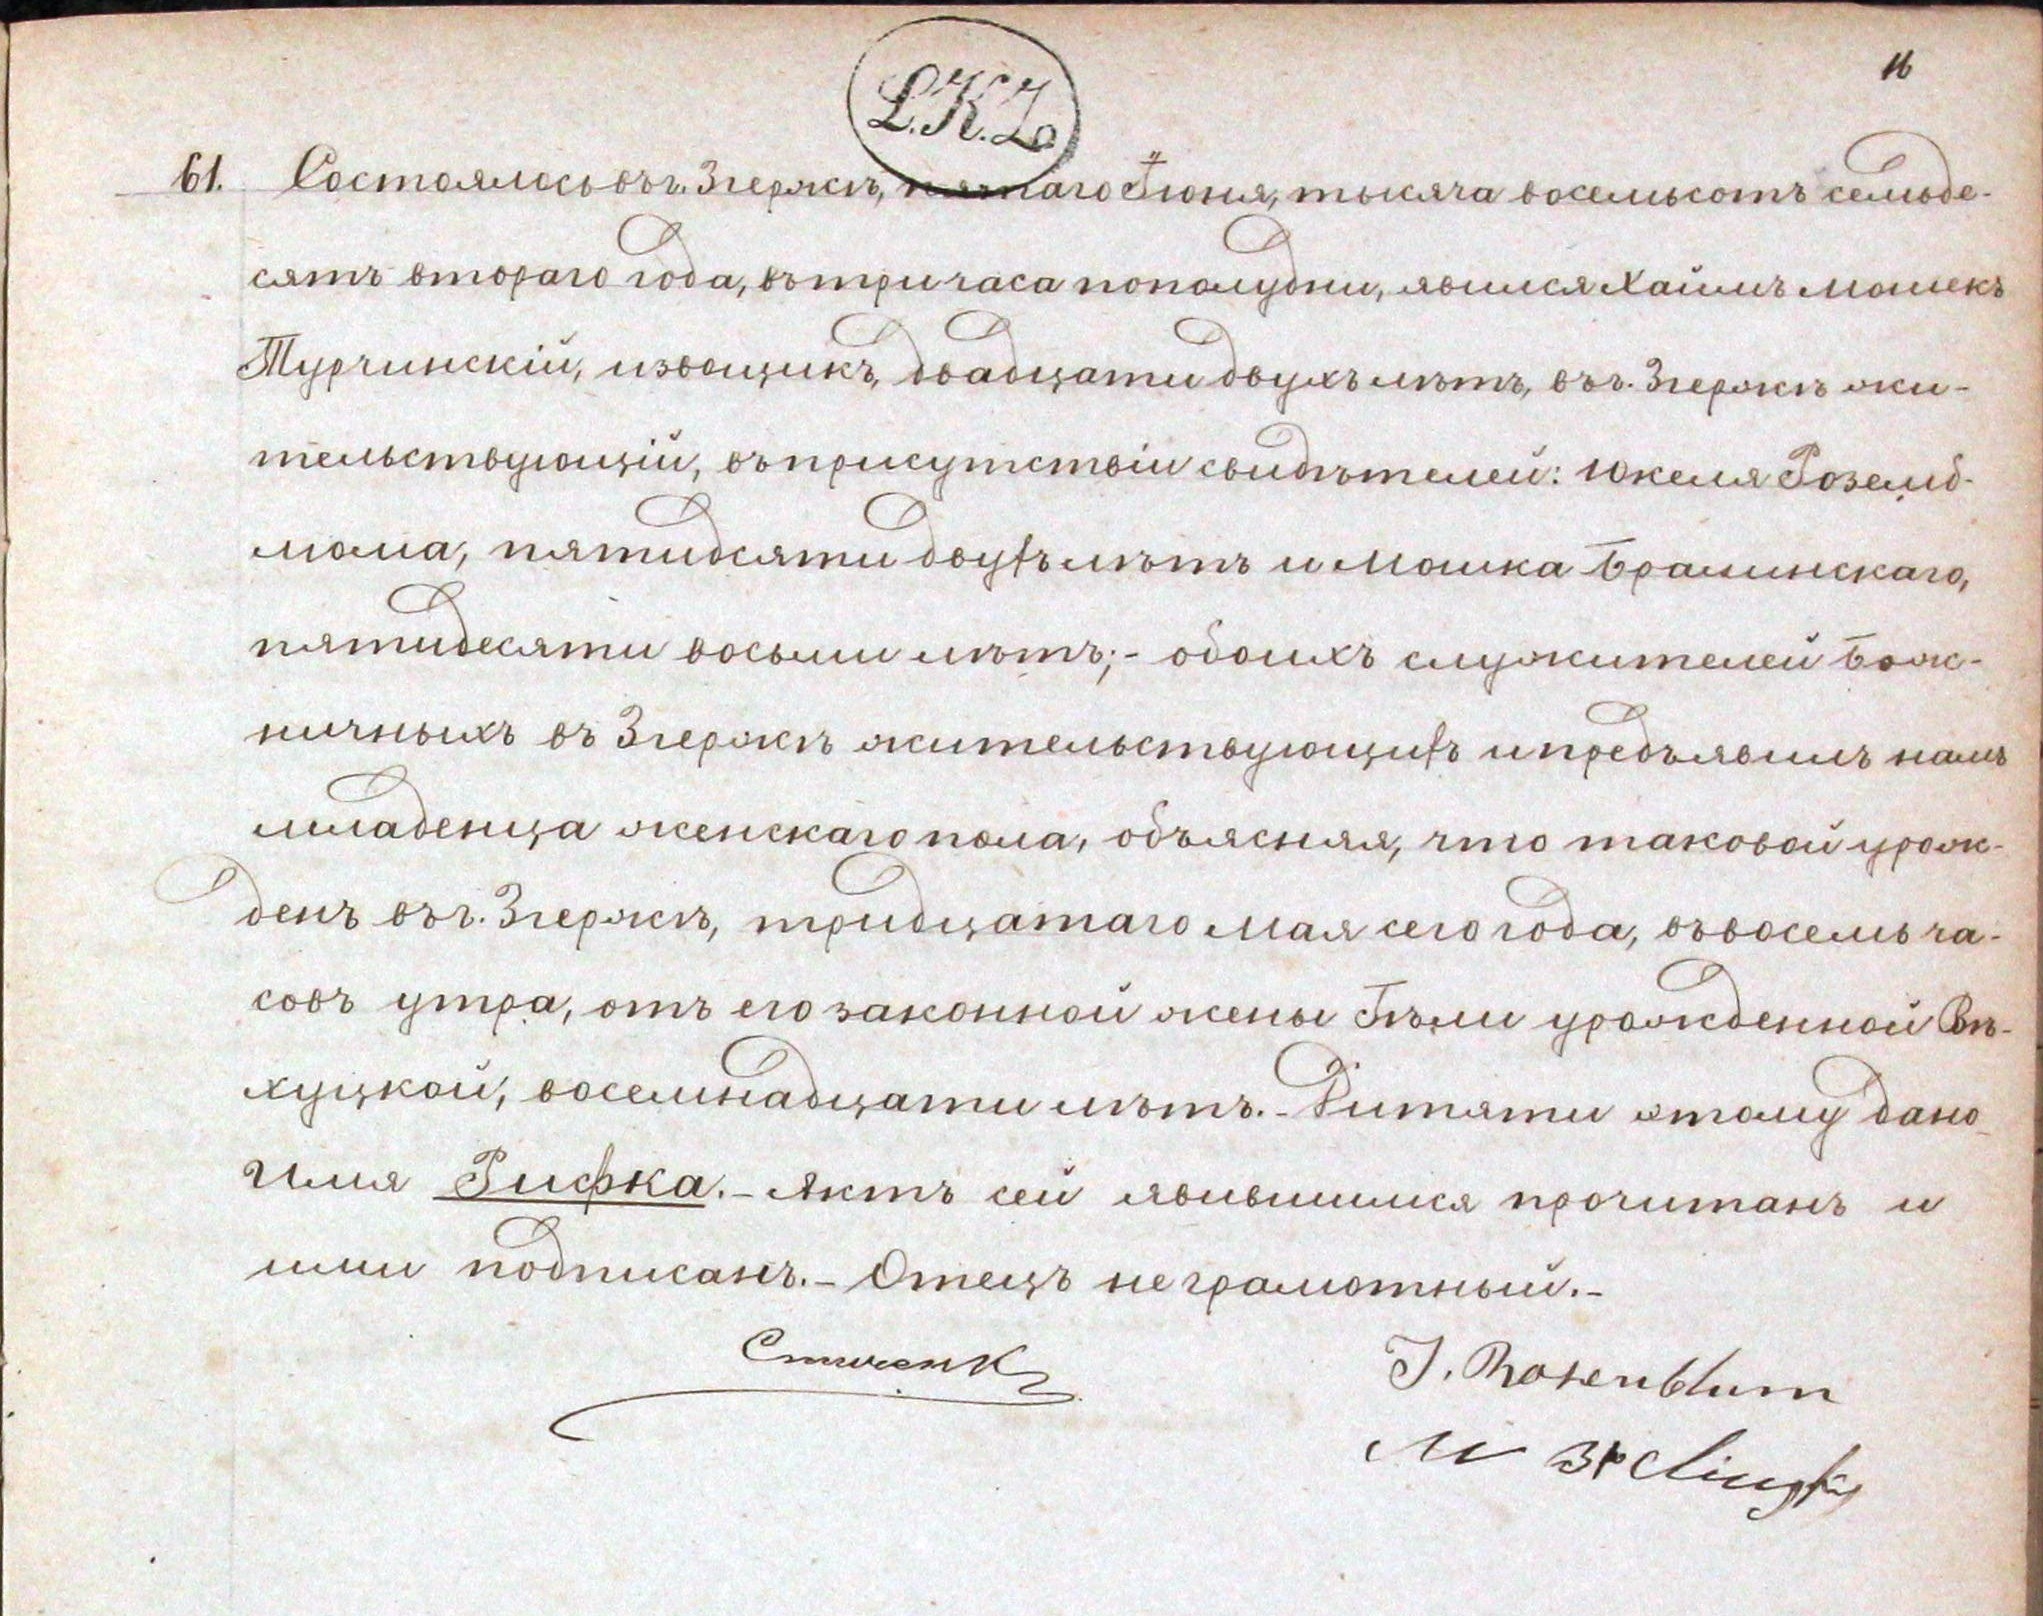 L.K.Z.
16
61. Состоялось въ г. Згержѣ, пятаго Іюня, тысяча восемьсотъ семьде-
сятъ втораго года, въ три часа пополудни, явился Хаимъ Мошекъ
Турчинскій, извощикъ, двадцати двухъ лѣтъ, въ г. Згержѣ жи-
тельствующій, въ присутствіи свидѣтелей: Юкеля Роземб-
люма, пятидсяти двухъ лѣтъ и Мошка Бралинскаго,
пятидесяти восьми лѣтъ;- обоихъ служителей Бож-
ничныхъ въ Згержѣ жительствующихъ и предъявилъ намъ
младенца женскаго пола, объясняя, что таковой урож-
денъ въ г. Згержѣ, тридцатаго Мая сего года, въ восемь ча-
совъ утра, отъ его законной жены Гѣли урожденной Вѣ-
хуцкой, восемнадцати лѣтъ.- Дитяти этому дано
имя Рифка.- Актъ сей явившимся прочитанъ и
ими подписанъ.- Отецъ неграмотный.-
J. Rosenblum